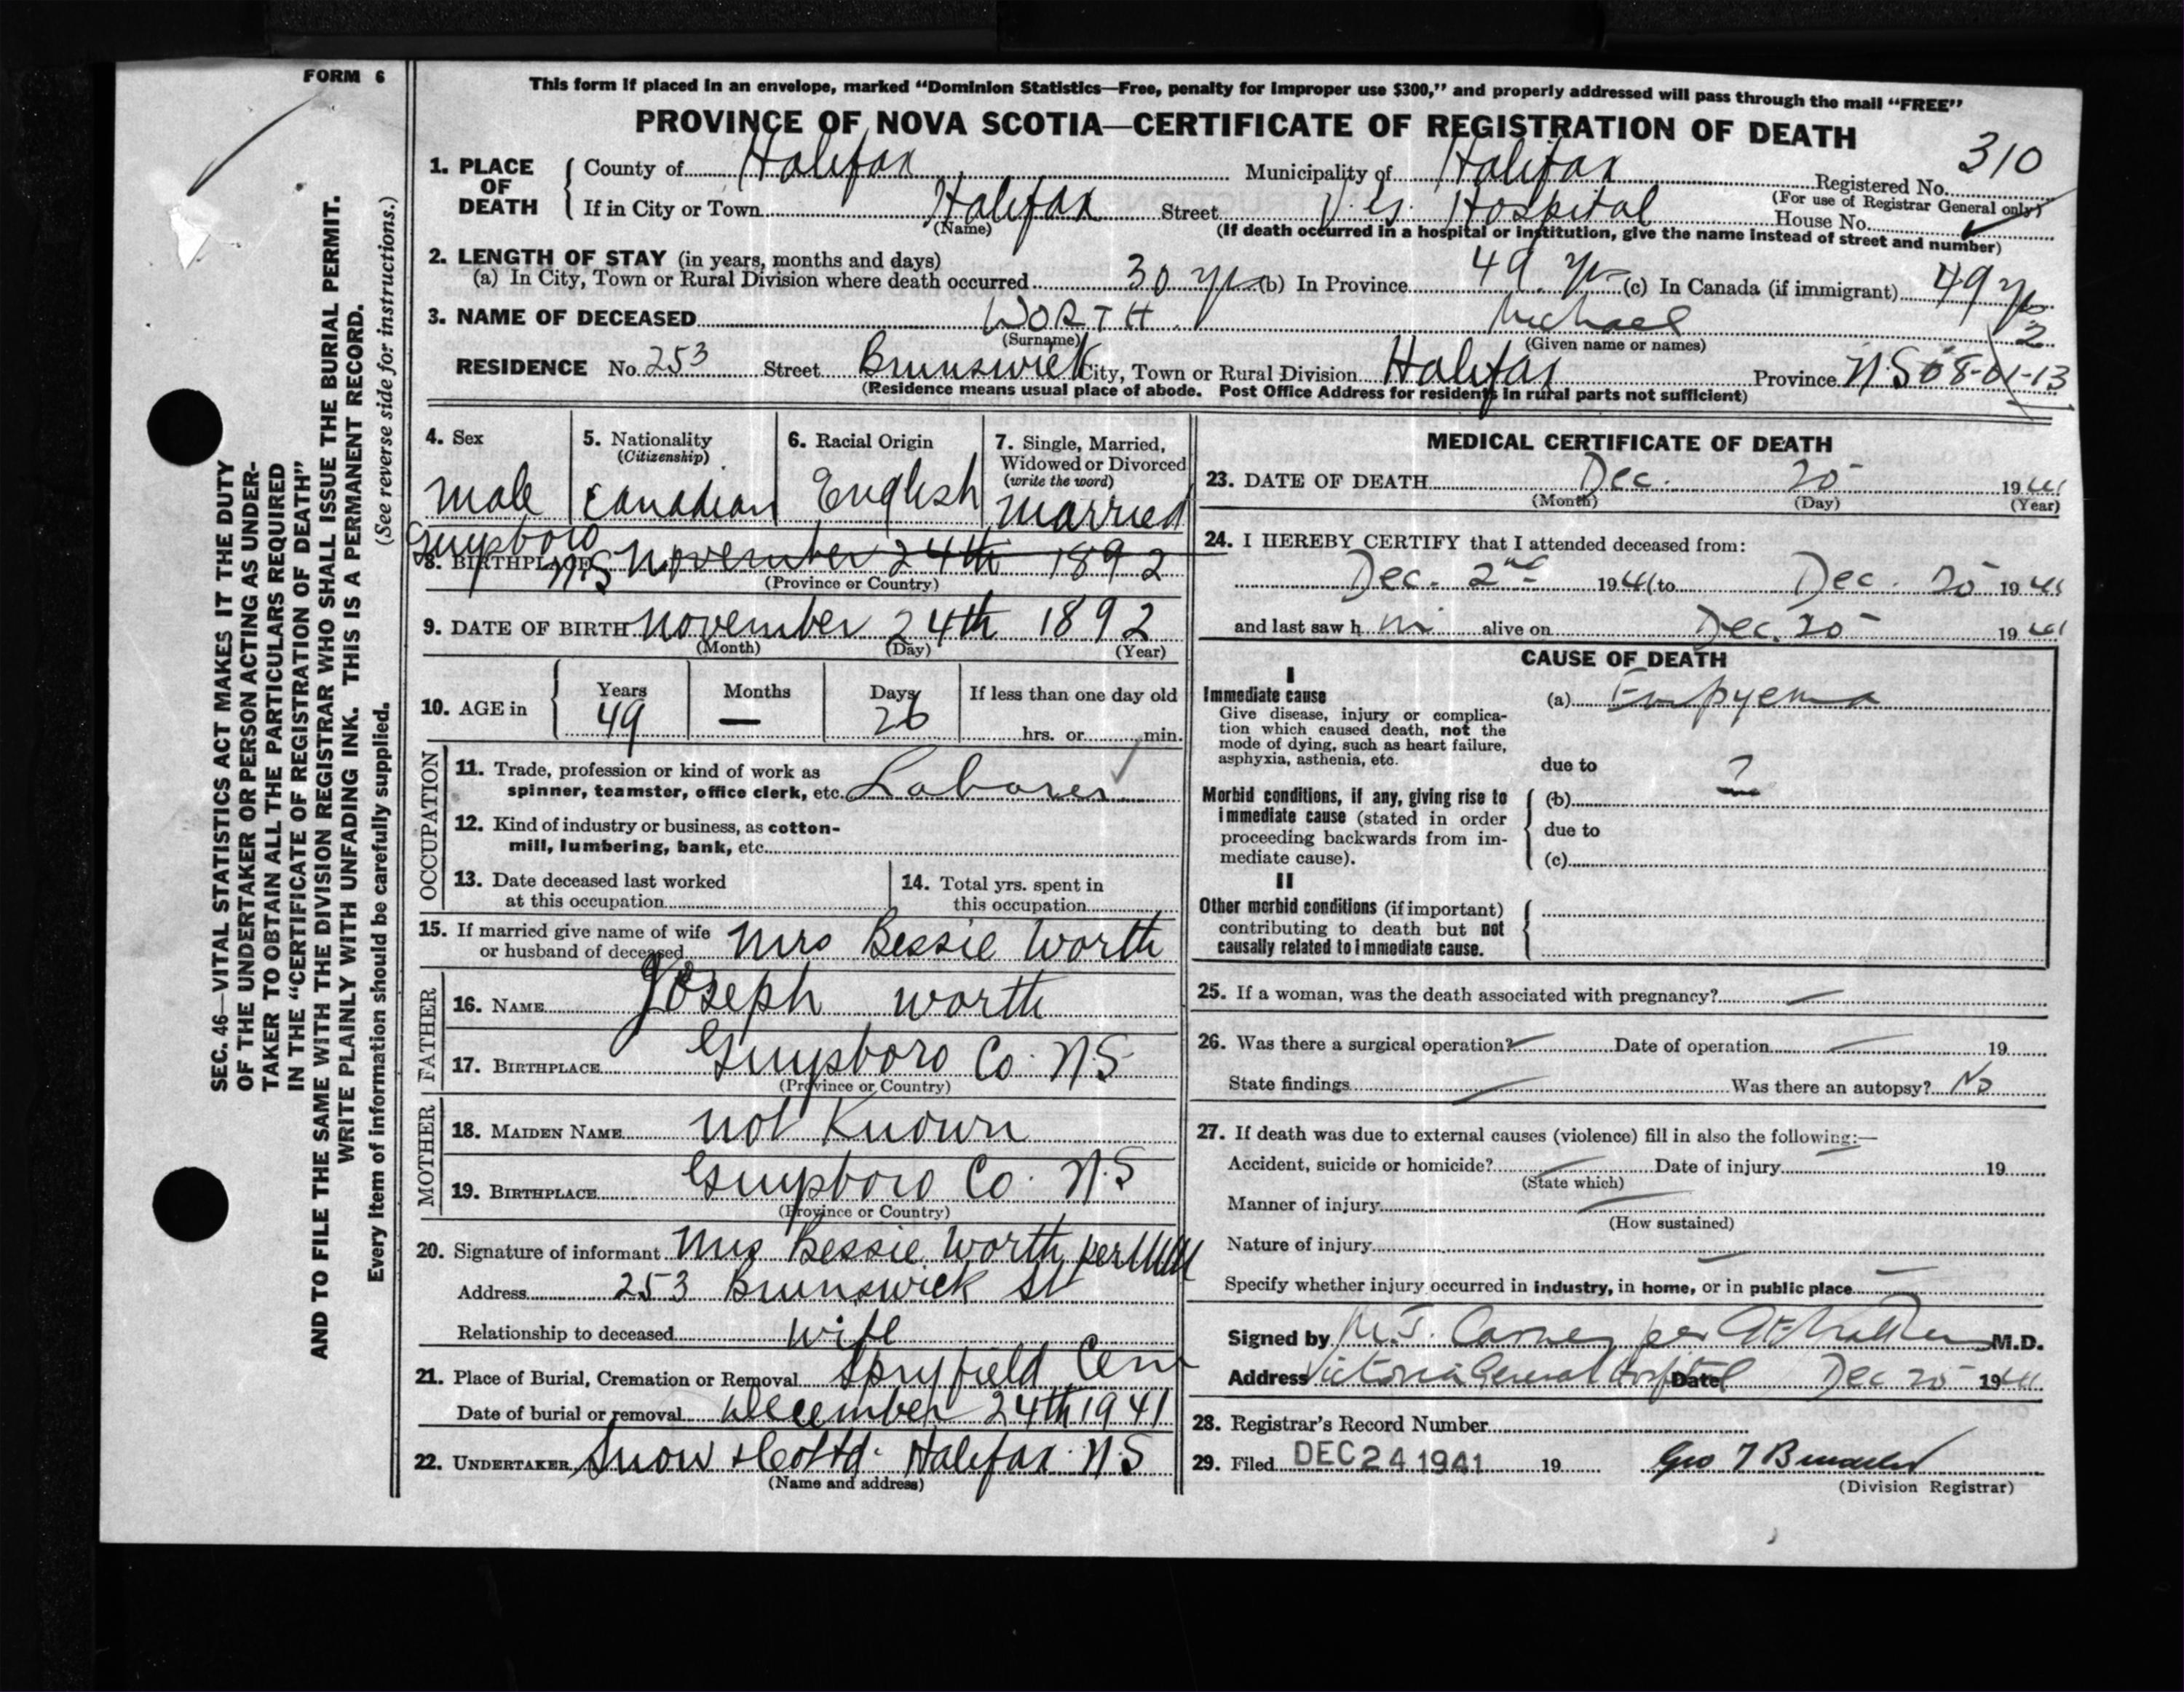 FORM 6
This form if placed in an envelope, marked "Dominion Statistics—Free, penalty for improper use $300," and properly addressed will pass through the mail "FREE"
PROVINCE OF NOVA SCOTIA—CERTIFICATE OF REGISTRATION OF DEATH
310
1. PLACE OF DEATH County of Halifax Municipality of Halifax Registered No.
(For use of Registrar General only)
If in City or Town Halifax Street V.G. Hospital House No.
(Name) (If death occurred in a hospital or institution, give the name instead of street and number)
2. LENGTH OF STAY (in years, months and days)
(a) In City, Town or Rural Division where death occurred 30 yrs (b) In Province 49 yrs (c) In Canada (if immigrant) 49 yrs
3. NAME OF DECEASED WORTH Michael 2
(Surname) (Given name or names)
RESIDENCE No. 253 Street Brunswick City, Town or Rural Division Halifax Province N.S 08-01-13
(Residence means usual place of abode. Post Office Address for residents in rural parts not sufficient)
4. Sex male
5. Nationality (Citizenship) Canadian
6. Racial Origin English
7. Single, Married, Widowed or Divorced (write the word) married
Guysboro
8. BIRTHPLACE N.S November 24th 1892
(Province or Country)
9. DATE OF BIRTH November 24th 1892
(Month) (Day) (Year)
10. AGE in Years 49 Months — Days 26 If less than one day old hrs. or min.
OCCUPATION
11. Trade, profession or kind of work as
spinner, teamster, office clerk, etc. Laborer
12. Kind of industry or business, as cotton-
mill, lumbering, bank, etc.
13. Date deceased last worked
at this occupation
14. Total yrs. spent in
this occupation
15. If married give name of wife
or husband of deceased Mrs Bessie Worth
FATHER
16. NAME Joseph Worth
17. BIRTHPLACE Guysboro Co. N.S
(Province or Country)
MOTHER
18. MAIDEN NAME not Known
19. BIRTHPLACE Guysboro Co. N.S
(Province or Country)
20. Signature of informant Mrs Bessie Worth per
Address 253 Brunswick St
Relationship to deceased wife
21. Place of Burial, Cremation or Removal Spryfield Cem
Date of burial or removal December 24th 1941
22. UNDERTAKER Snow & Co Ltd. Halifax N.S
(Name and address)
MEDICAL CERTIFICATE OF DEATH
23. DATE OF DEATH Dec. 20 1941
(Month) (Day) (Year)
24. I HEREBY CERTIFY that I attended deceased from:
Dec. 2nd 1941 to Dec. 20 1941
and last saw h im alive on Dec. 20 1941
CAUSE OF DEATH
I
Immediate cause
Give disease, injury or complica-
tion which caused death, not the
mode of dying, such as heart failure,
asphyxia, asthenia, etc.
(a) Empyema
due to ?
Morbid conditions, if any, giving rise to
immediate cause (stated in order
proceeding backwards from im-
mediate cause).
(b)
due to
(c)
II
Other morbid conditions (if important)
contributing to death but not
causally related to immediate cause.
25. If a woman, was the death associated with pregnancy? —
26. Was there a surgical operation? — Date of operation — 19
State findings — Was there an autopsy? No
27. If death was due to external causes (violence) fill in also the following:—
Accident, suicide or homicide? Date of injury 19
(State which)
Manner of injury
(How sustained)
Nature of injury
Specify whether injury occurred in industry, in home, or in public place
Signed by M.J. Carney per M.D.
Address Victoria General Hospital Date Dec 20 1941
28. Registrar's Record Number
29. Filed DEC 24 1941 19
(Division Registrar)
SEC. 46—VITAL STATISTICS ACT MAKES IT THE DUTY
OF THE UNDERTAKER OR PERSON ACTING AS UNDER-
TAKER TO OBTAIN ALL THE PARTICULARS REQUIRED
IN THE "CERTIFICATE OF REGISTRATION OF DEATH"
AND TO FILE THE SAME WITH THE DIVISION REGISTRAR WHO SHALL ISSUE THE BURIAL PERMIT.
WRITE PLAINLY WITH UNFADING INK. THIS IS A PERMANENT RECORD.
Every item of information should be carefully supplied. (See reverse side for instructions.)